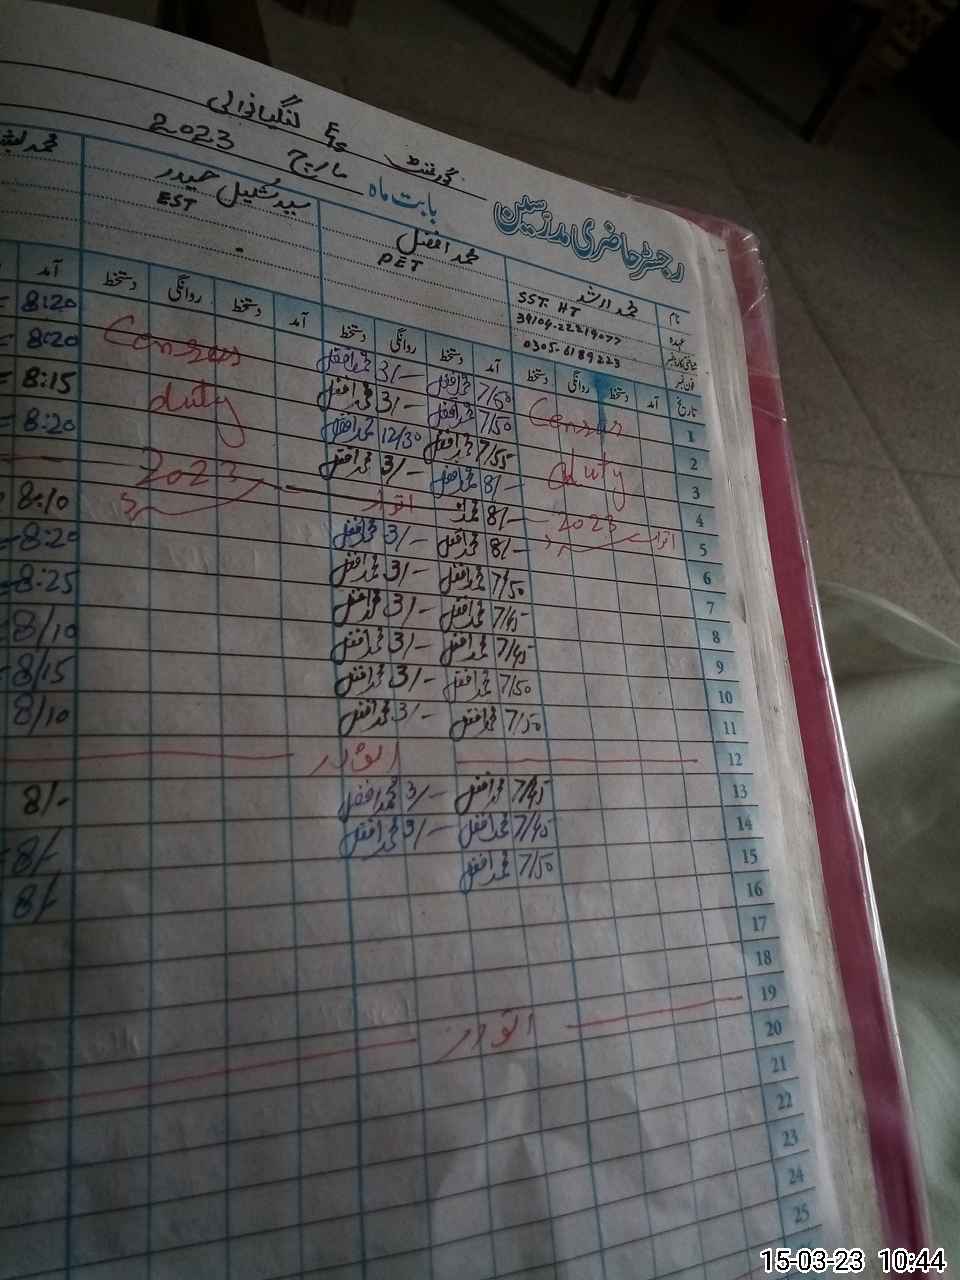 گورنمنٹ E/S
رجسٹر حاضری مدرسین بابت ماہ مارچ 2023
نام محمد ارشد محمد افضل سید شبیل حیدر
عہدہ SST. HT PET EST
شناختی کارڈ نمبر
فون نمبر 0305-6189223
تاریخ آمد دستخط روانگی دستخط آمد دستخط روانگی دستخط آمد دستخط روانگی دستخط آمد
1 Census 7/50 محمد افضل 3/- محمد افضل Census 8:20
2 7/50 محمد افضل 3/- محمد افضل 8:20
3 duty 7/55 محمد افضل 12/30 محمد افضل duty 8:15
4 2023 8/- محمد افضل 3/- محمد افضل 2023 8:20
5 اتوار 8/- اتوار
6 8/- محمد افضل 3/- محمد افضل 8:10
7 7/50 محمد افضل 3/- محمد افضل 8:20
8 7/45 محمد افضل 3/- محمد افضل 8:25
9 7/45 محمد افضل 3/- محمد افضل 8/10
10 7/50 محمد افضل 3/- محمد افضل 8/15
11 7/50 محمد افضل 3/- محمد افضل 8/10
12 اتوار
13 7/45 محمد افضل 3/- محمد افضل 8/-
14 7/45 محمد افضل 3/- محمد افضل 8/-
15 7/50 محمد افضل 8/-
16
17
18
19 اتوار
20
21
22
23
24
25
15-03-23 10:44